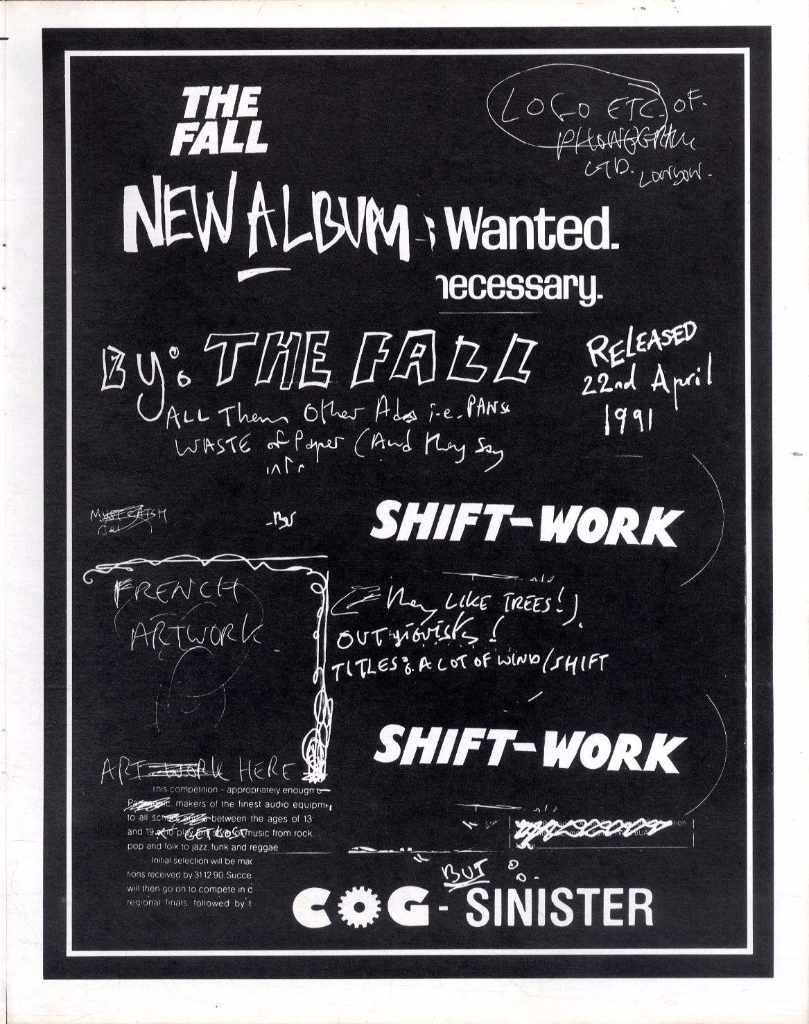 THE
FALL
LOGO ETC. OF.
LTD. LONDON.
NEW ALBUM : Wanted.
necessary.
By: THE FALL
RELEASED
22nd April
1991
ALL Them Other Ads i.e.
WASTE of Paper (And they Say
SHIFT-WORK
FRENCH
ARTWORK.
they LIKE TREES!).
OUT
TITLES: A LOT OF WIND/SHIFT
SHIFT-WORK
ART WORK HERE
this competition - appropriately enough
makers of the finest audio equipm
to all between the ages of 13
and 19 music from rock
GET LOST
pop and folk to jazz, funk and reggae
Initial selection will be mad
tions received by 31.12.90. Succe
will then go on to compete in c
regional finals, followed by t
BUT :
COG - SINISTER